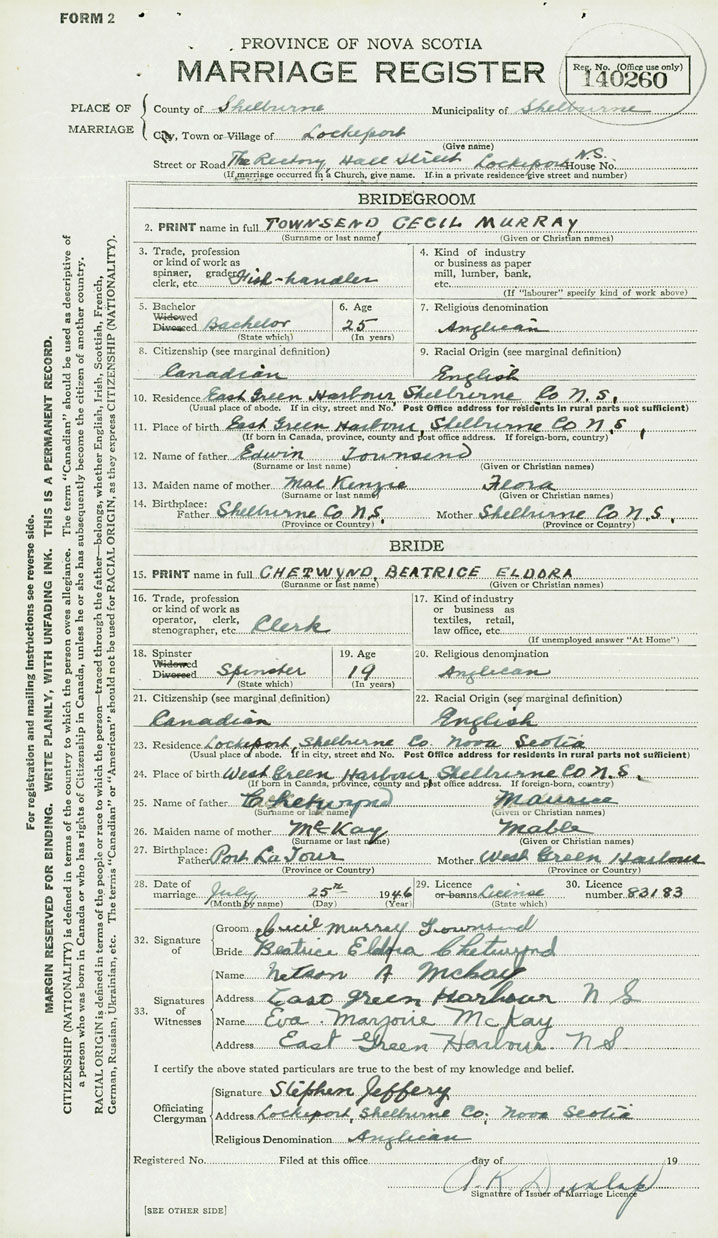 FORM 2
PROVINCE OF NOVA SCOTIA
MARRIAGE REGISTER
Reg. No. (Office use only)
140260
PLACE OF MARRIAGE
County of Shelburne Municipality of Shelburne
City, Town or Village of Lockeport
(Give name)
Street or Road The Rectory, Hall Street Lockeport N.S. House No.
(If marriage occurred in a Church, give name. If in a private residence give street and number)
BRIDEGROOM
2. PRINT name in full TOWNSEND CECIL MURRAY
(Surname or last name) (Given or Christian names)
3. Trade, profession or kind of work as spinner, grader, clerk, etc. Fish-handler
4. Kind of industry or business as paper mill, lumber, bank, etc.
(If "labourer" specify kind of work above)
5. Bachelor Widowed Divorced Bachelor
(State which)
6. Age 25
(In years)
7. Religious denomination
Anglican
8. Citizenship (see marginal definition)
Canadian
9. Racial Origin (see marginal definition)
English
10. Residence East Green Harbour Shelburne Co N.S.
(Usual place of abode. If in city, street and No. Post Office address for residents in rural parts not sufficient)
11. Place of birth East Green Harbour, Shelburne Co N.S.
(If born in Canada, province, county and post office address. If foreign-born, country)
12. Name of father Edwin Townsend
(Surname or last name) (Given or Christian names)
13. Maiden name of mother Mac Kenzie Flora
(Surname or last name) (Given or Christian names)
14. Birthplace: Father Shelburne Co N.S. Mother Shelburne Co N.S.
(Province or Country) (Province or Country)
BRIDE
15. PRINT name in full CHETWYND, BEATRICE ELDORA
(Surname or last name) (Given or Christian names)
16. Trade, profession or kind of work as operator, clerk, stenographer, etc. Clerk
17. Kind of industry or business as textiles, retail, law office, etc.
(If unemployed answer "At Home")
18. Spinster Widowed Divorced Spinster
(State which)
19. Age 19
(In years)
20. Religious denomination
Anglican
21. Citizenship (see marginal definition)
Canadian
22. Racial Origin (see marginal definition)
English
23. Residence Lockeport, Shelburne Co. Nova Scotia
(Usual place of abode. If in city, street and No. Post Office address for residents in rural parts not sufficient)
24. Place of birth West Green Harbour, Shelburne Co N.S.
(If born in Canada, province, county and post office address. If foreign-born, country)
25. Name of father Chetwynd Maurice
(Surname or last name) (Given or Christian names)
26. Maiden name of mother McKay Mable
(Surname or last name) (Given or Christian names)
27. Birthplace: Father Port La Tour Mother West Green Harbour
(Province or Country) (Province or Country)
28. Date of marriage July 25th 1946
(Month by name) (Day) (Year)
29. Licence or banns License
(State which)
30. Licence number 83183
32. Signature of
Groom Cecil Murray Townsend
Bride Beatrice Eldora Chetwynd
33. Signatures of Witnesses
Name Nelson A Mckay
Address East green Harbour N S
Name Eva Marjorie McKay
Address East Green Harbour. N.S.
I certify the above stated particulars are true to the best of my knowledge and belief.
Officiating Clergyman
Signature Stephen Jeffery
Address Lockeport, Shelburne Co, Nova Scotia
Religious Denomination Anglican
Registered No. Filed at this office day of 19
Dunlap
Signature of Issuer of Marriage Licence
[SEE OTHER SIDE]
For registration and mailing instructions see reverse side.
MARGIN RESERVED FOR BINDING. WRITE PLAINLY, WITH UNFADING INK. THIS IS A PERMANENT RECORD.
CITIZENSHIP (NATIONALITY) is defined in terms of the country to which the person owes allegiance. The term "Canadian" should be used as descriptive of
a person who was born in Canada or who has rights of Citizenship in Canada, unless he or she has subsequently become the citizen of another country.
RACIAL ORIGIN is defined in terms of the people or race to which the person—traced through the father—belongs, whether English, Irish, Scottish, French,
German, Russian, Ukrainian, etc. The terms "Canadian" or "American" should not be used for RACIAL ORIGIN, as they express CITIZENSHIP (NATIONALITY).